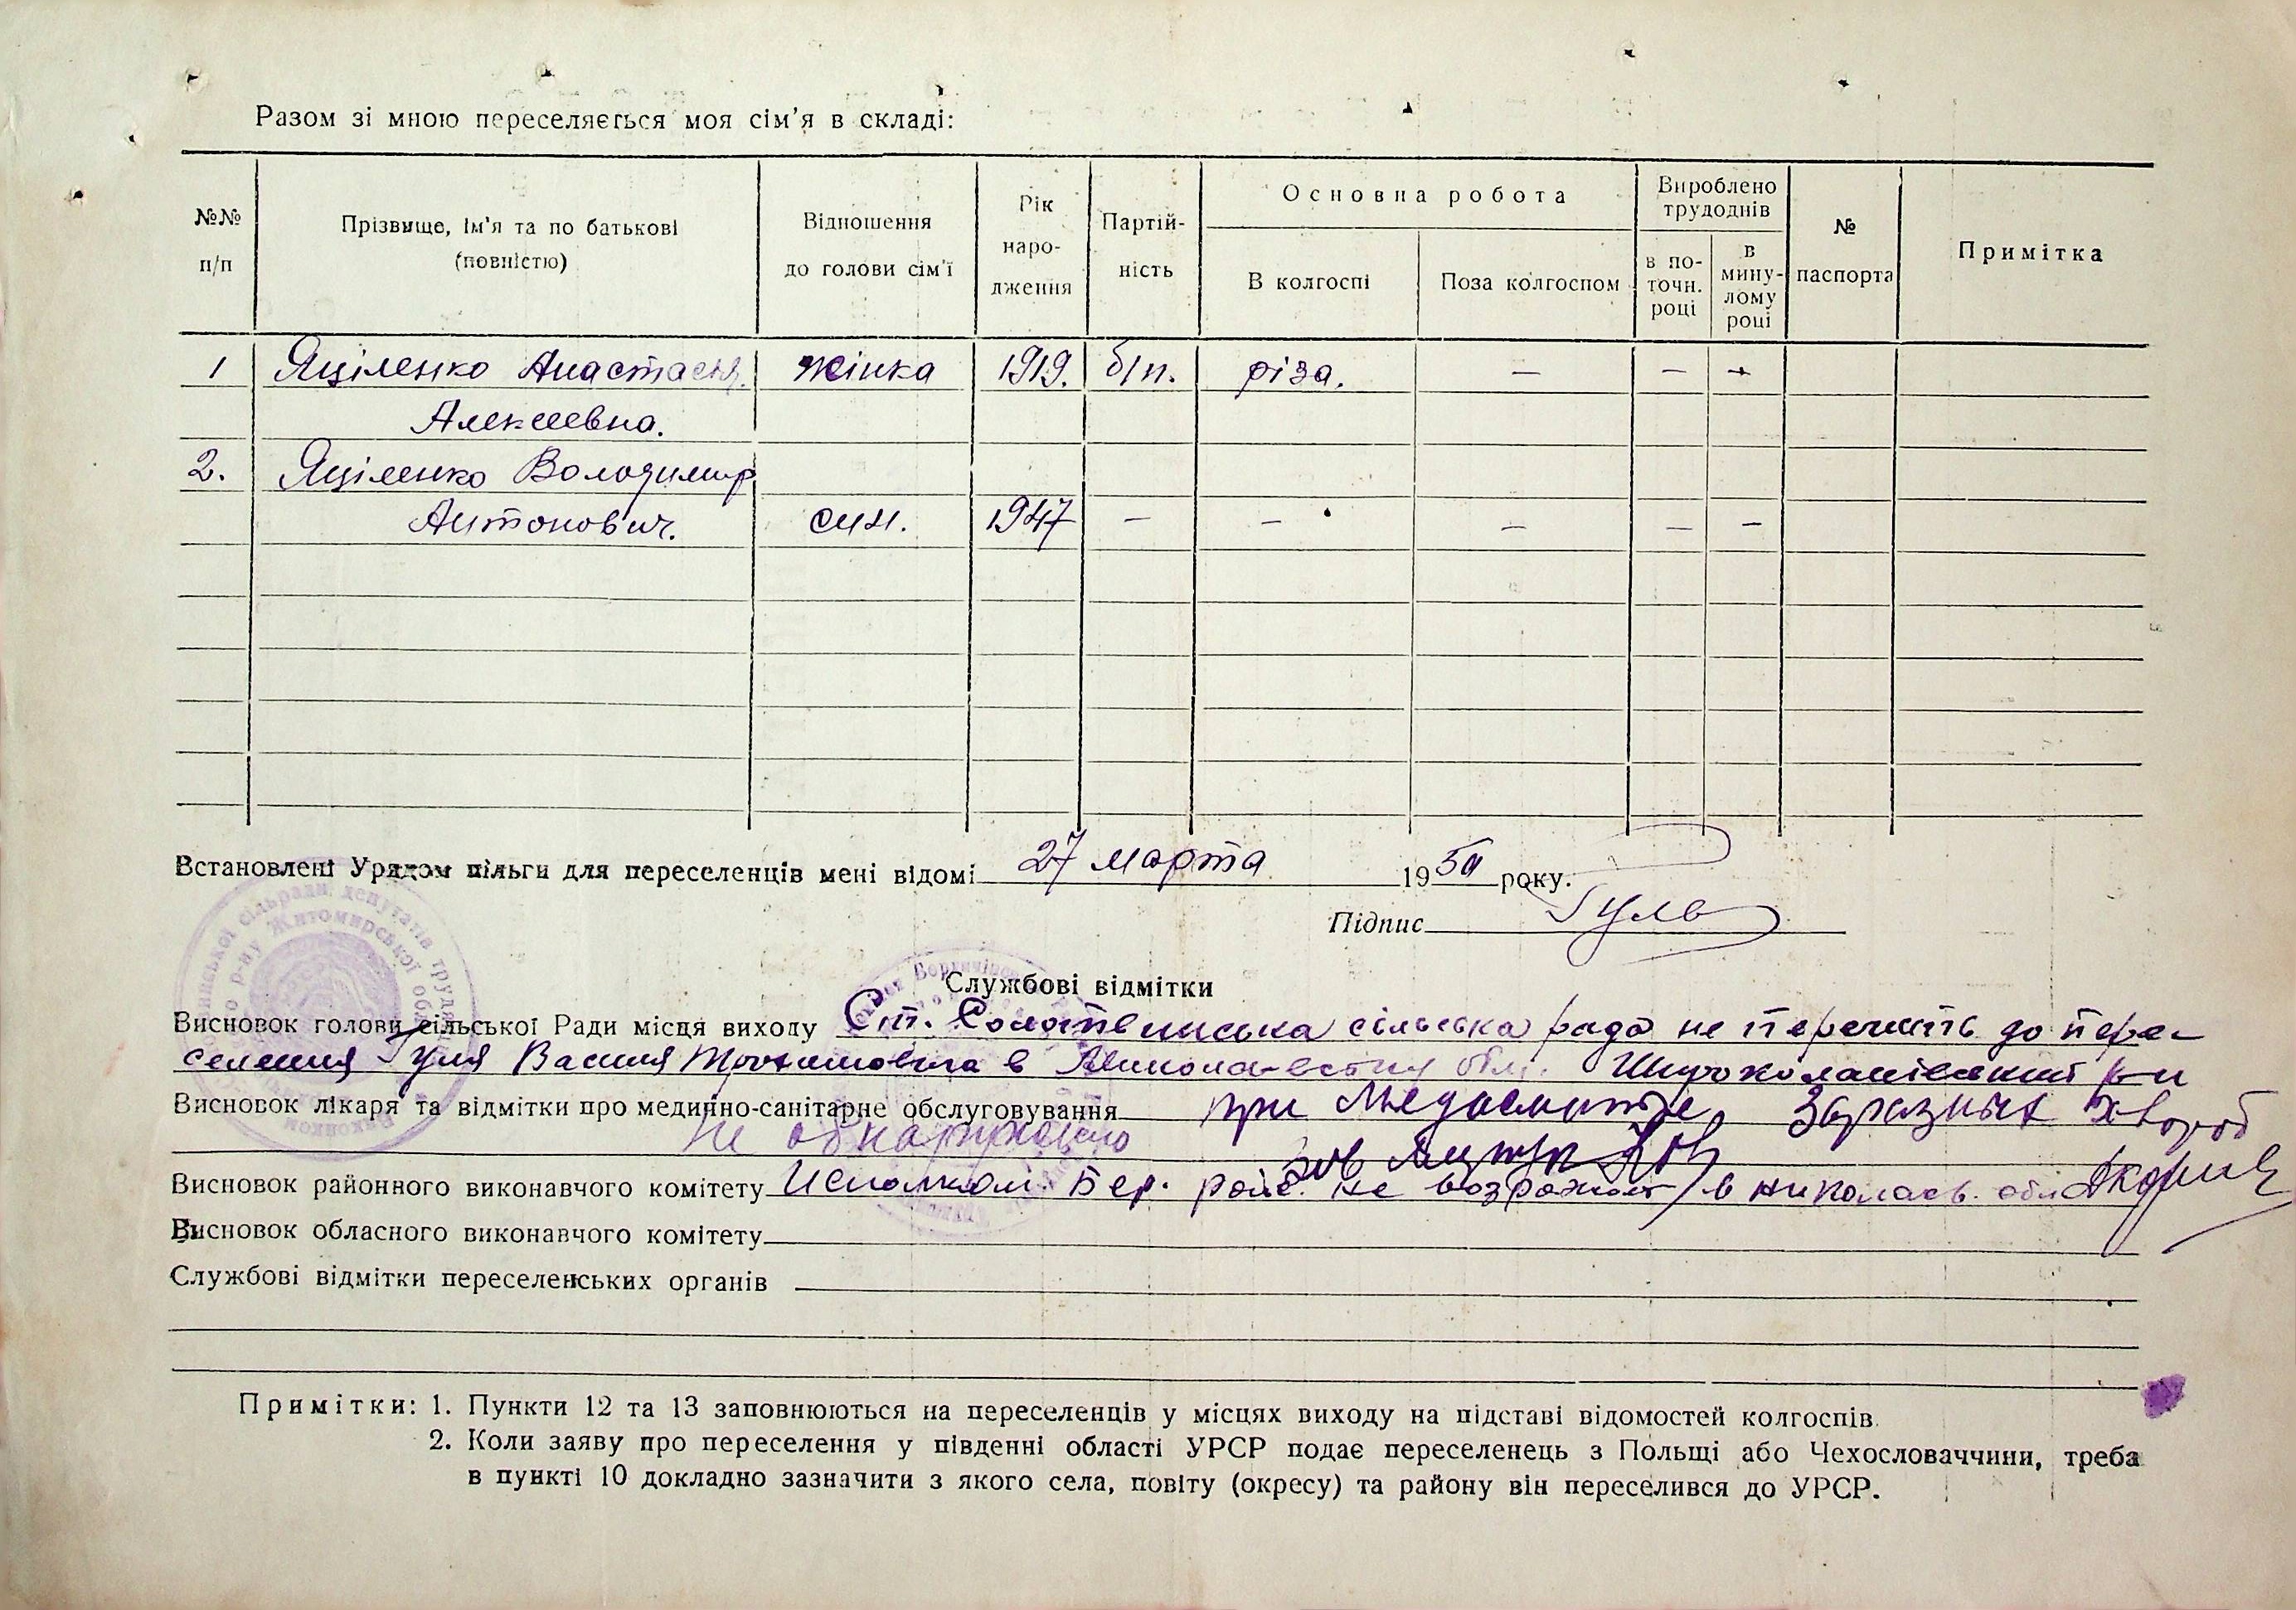 Разом зі мною переселяється моя сім'я в складі:
№№ п/п
Прізвище, ім'я та по батькові (повністю)
Відношення до голови сім'ї
Рік народження
Партійність
Основна робота
В колгоспі
Поза колгоспом
Вироблено трудоднів
в поточн. році
в минулому році
№ паспорта
Примітка
1 Яціленко Анастасія жінка 1919. б/п. різа. — — —
Алексеевна.
2. Яціленко Володимир
Антонович. син. 1947 — — — — —
Встановлені Урядом пільги для переселенців мені відомі 27 марта 1950 року.
Підпис Гуль
Службові відмітки
Висновок голови сільської Ради місця виходу Ст. Солотвинська сільська рада не перечить до пере-
селения Гуля Василя Трохимовича в Николаевську обл. Широколанівський р-н
Висновок лікаря та відмітки про медично-санітарне обслуговування при медосмотре заразных хвороб
не обнаружено
Висновок районного виконавчого комітету Исполком Бер. рай. не возражает в николаев. обл
Висновок обласного виконавчого комітету
Службові відмітки переселенських органів
Примітки: 1. Пункти 12 та 13 заповнюються на переселенців у місцях виходу на підставі відомостей колгоспів.
2. Коли заяву про переселення у південні області УРСР подає переселенець з Польщі або Чехословаччини, треба
в пункті 10 докладно зазначити з якого села, повіту (окресу) та району він переселився до УРСР.